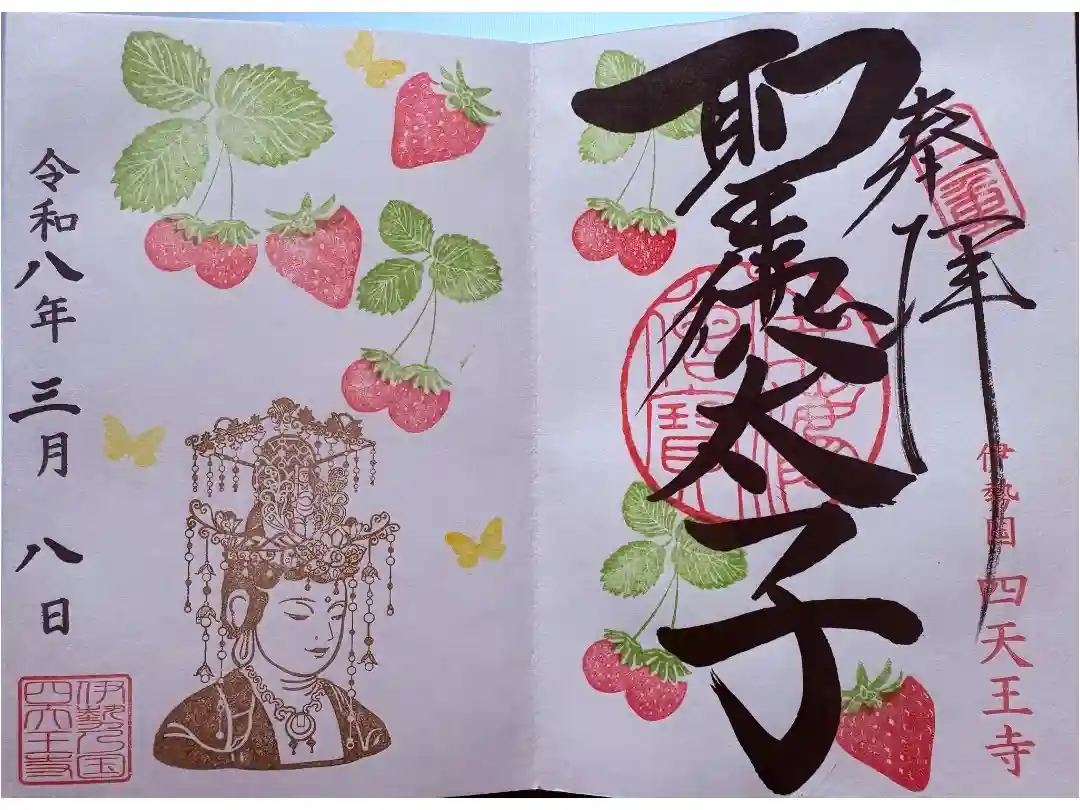 奉拝
聖徳太子
伊勢国 四天王寺
令和八年 三月 八日
伊勢国
四天王寺